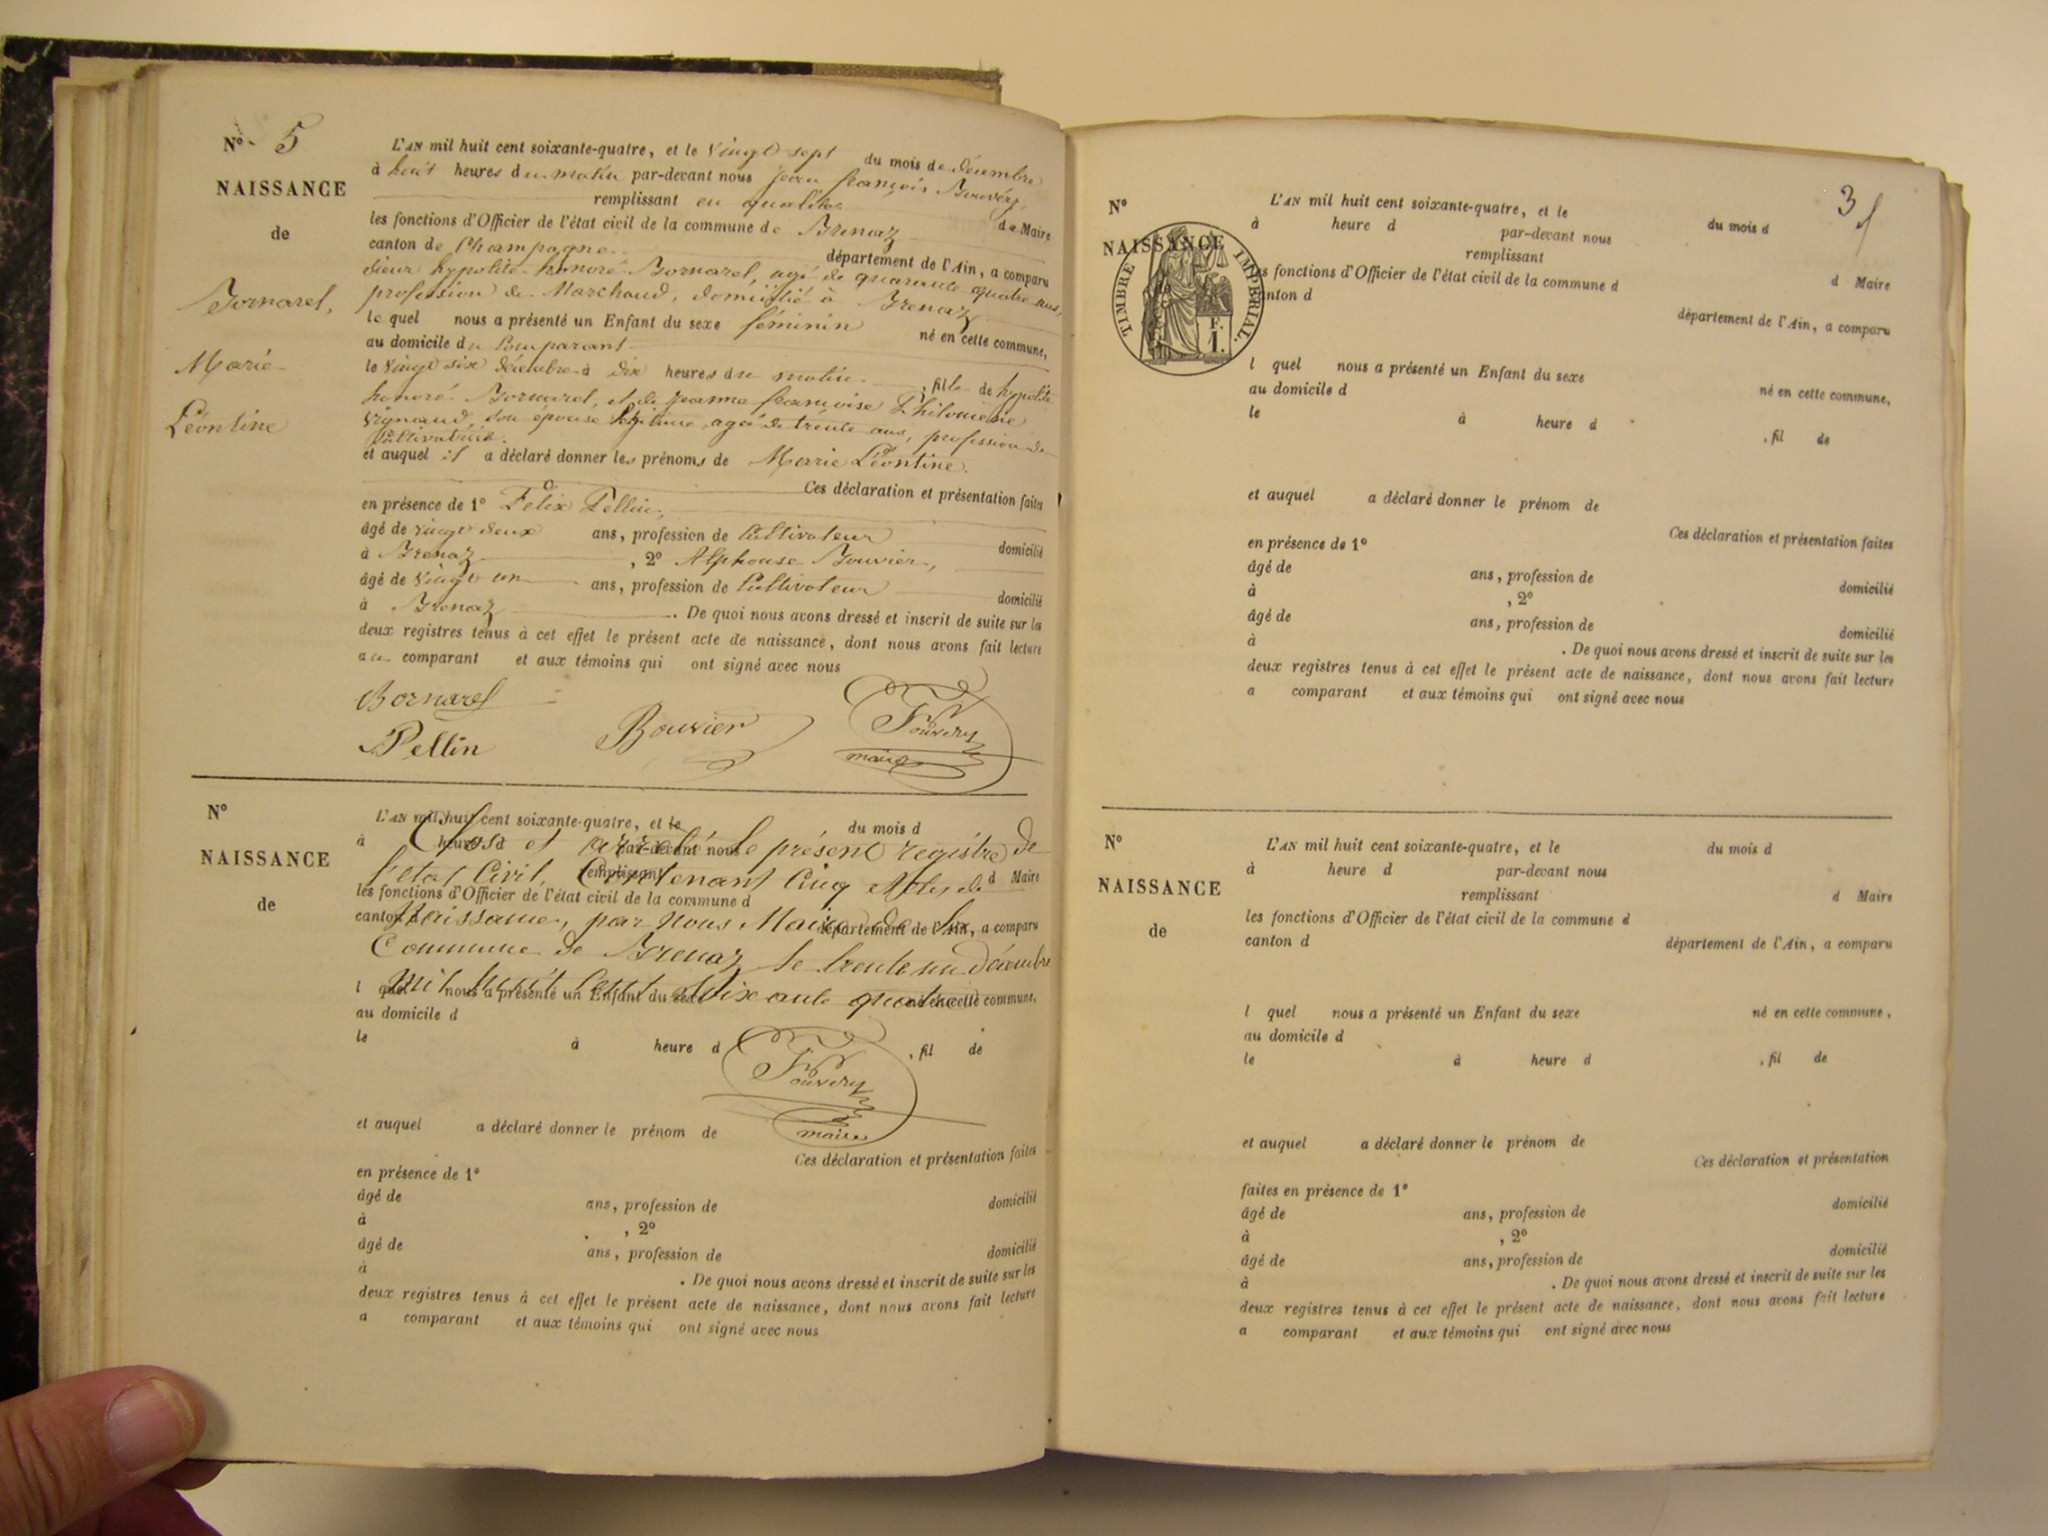 N° 5
NAISSANCE
de
Bornarel,
Marie
Léontine
L'AN mil huit cent soixante-quatre, et le vingt sept du mois de décembre
à huit heures du matin par-devant nous jean françois Bouvéry,
remplissant en qualité de Maire
les fonctions d'Officier de l'état civil de la commune de Brenaz
canton de Champagne département de l'Ain, a comparu
sieur hypolite honoré Bornarel, agé de quarante quatre ans,
profession de Marchand, domicilié à Brenaz
le quel nous a présenté un Enfant du sexe féminin né en cette commune,
au domicile du Comparant
le vingt six décembre à dix heures du matin, fille de hypolite
honoré Bornarel, et de jeanne françoise Philomène
Vignaud son épouse légitime, agée de trente ans, profession de
Cultivatrice.
et auquel il a déclaré donner les prénoms de Marie Léontine.
Ces déclaration et présentation faites
en présence de 1° Félix Pellin,
âgé de vingt deux ans, profession de Cultivateur domicilié
à Brenaz, 2° Alphonse Bouvier,
âgé de vingt un ans, profession de Cultivateur domicilié
à Brenaz. De quoi nous avons dressé et inscrit de suite sur les
deux registres tenus à cet effet le présent acte de naissance, dont nous avons fait lecture
au comparant et aux témoins qui ont signé avec nous
Bornarel
Pellin Bouvier Bouvéry
maire
N°
NAISSANCE
de
L'AN mil huit cent soixante-quatre, et le du mois d
à heure d par-devant nous
remplissant d Maire
les fonctions d'Officier de l'état civil de la commune d
canton d département de l'Ain, a comparu
Clos et arrêté le présent registre de
l'état Civil, Contenant Cinq Actes de
Naissance, par Nous Maire de la
Commune de Brenaz le trente un décembre
mil huit Cent soixante quatre
l quel nous a présenté un Enfant du sexe né en cette commune,
au domicile d
le à heure d , fil de
Bouvéry
maire
et auquel a déclaré donner le prénom de
Ces déclaration et présentation faites
en présence de 1°
âgé de ans, profession de domicilié
à , 2°
âgé de ans, profession de domicilié
à . De quoi nous avons dressé et inscrit de suite sur les
deux registres tenus à cet effet le présent acte de naissance, dont nous avons fait lecture
a comparant et aux témoins qui ont signé avec nous
3
N°
NAISSANCE
TIMBRE IMPÉRIAL
F.
1.
L'AN mil huit cent soixante-quatre, et le du mois d
à heure d par-devant nous
remplissant d Maire
les fonctions d'Officier de l'état civil de la commune d
canton d département de l'Ain, a comparu
l quel nous a présenté un Enfant du sexe né en cette commune,
au domicile d
le à heure d , fil de
et auquel a déclaré donner le prénom de
Ces déclaration et présentation faites
en présence de 1°
âgé de ans, profession de domicilié
à , 2°
âgé de ans, profession de domicilié
à . De quoi nous avons dressé et inscrit de suite sur les
deux registres tenus à cet effet le présent acte de naissance, dont nous avons fait lecture
a comparant et aux témoins qui ont signé avec nous
N°
NAISSANCE
de
L'AN mil huit cent soixante-quatre, et le du mois d
à heure d par-devant nous
remplissant d Maire
les fonctions d'Officier de l'état civil de la commune d
canton d département de l'Ain, a comparu
l quel nous a présenté un Enfant du sexe né en cette commune,
au domicile d
le à heure d , fil de
et auquel a déclaré donner le prénom de
Ces déclaration et présentation
faites en présence de 1°
âgé de ans, profession de domicilié
à , 2°
âgé de ans, profession de domicilié
à . De quoi nous avons dressé et inscrit de suite sur les
deux registres tenus à cet effet le présent acte de naissance, dont nous avons fait lecture
a comparant et aux témoins qui ont signé avec nous